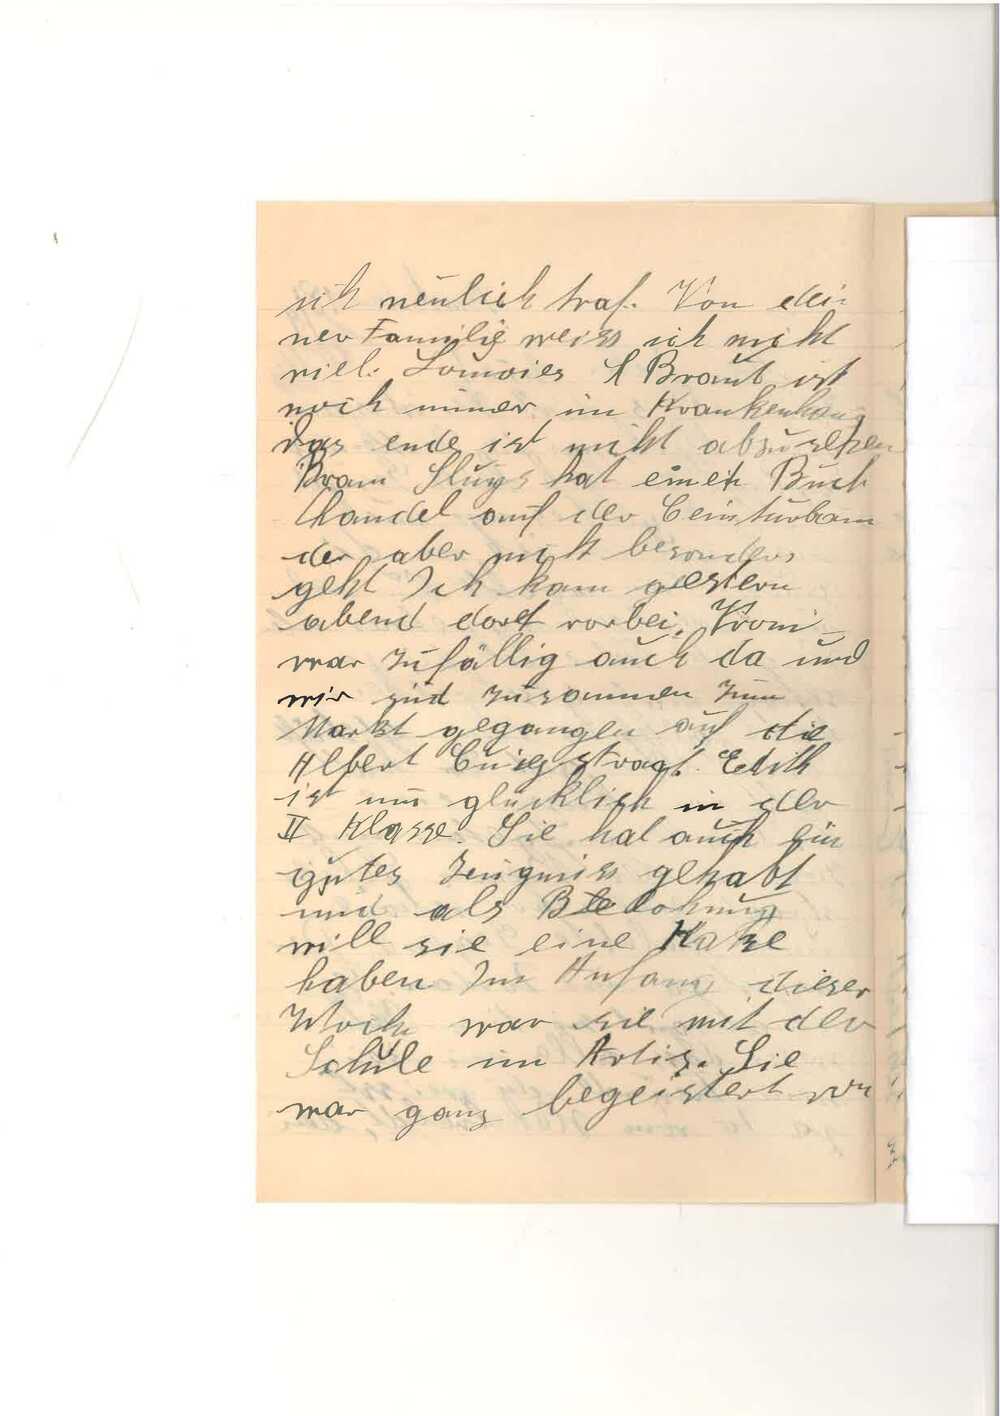 ich neulich traf. Von dei-
ner Familie weiss ich nicht
viel. Braut ist
noch immer im Krankenhaus
das ende ist nicht abzusehen
Bram Sluys hat einen Buch
handel auf der Ceinturbaan
der aber nicht besonders
geht Ich kam gestern
abend dort vorbei. Vroni
war zufällig auch da und
wir sind zusammen zum
Markt gegangen auf die
Albert Cuijpstraat. Edith
ist nun glücklich in der
II Klasse. Sie hat auch ein
gutes Zeugniss gehabt
und als Belohnung
will sie eine Katze
haben Im Anfang dieser
Woche war sie mit der
Schule im Artis. Sie
war ganz begeistert von